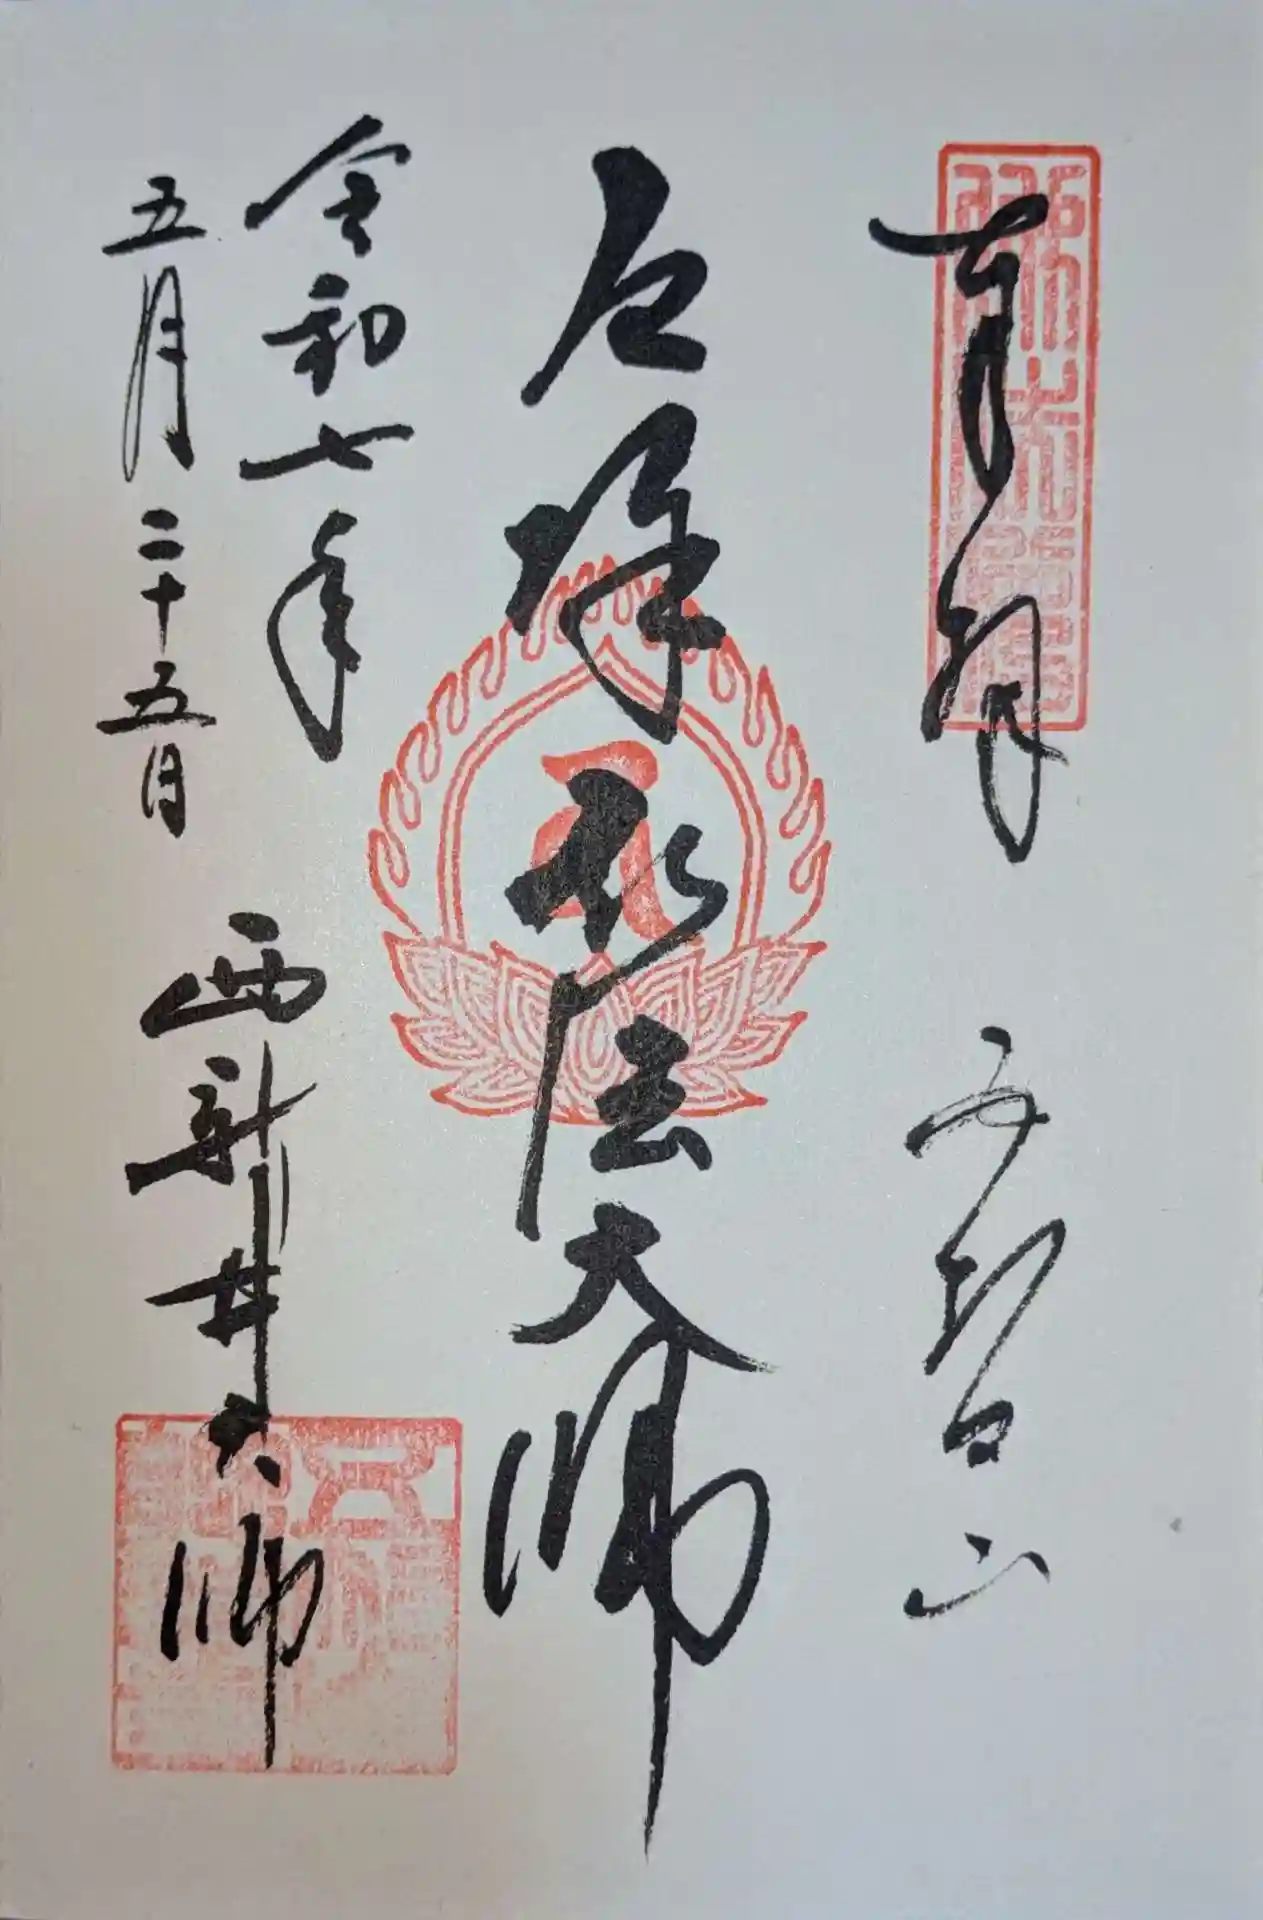 奉拝　五智山
厄除弘法大師
令和七年
五月二十五日
西新井大師